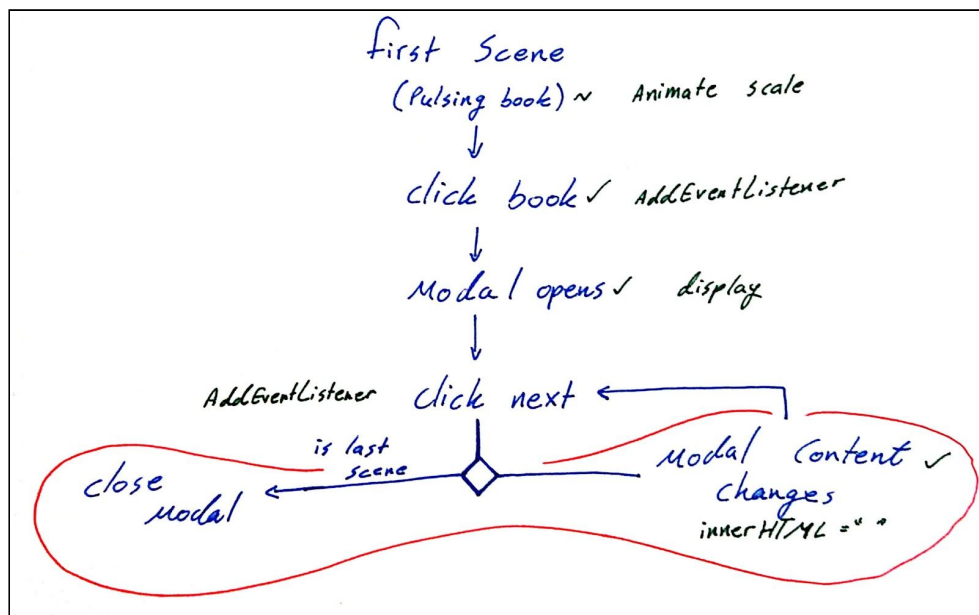 first Scene
(Pulsing book) ~ Animate scale
click book ✓ AddEventListener
Modal opens ✓ display
AddEventListener click next
is last
scene
Modal Content ✓
close
Modal
changes
innerHTML = " "